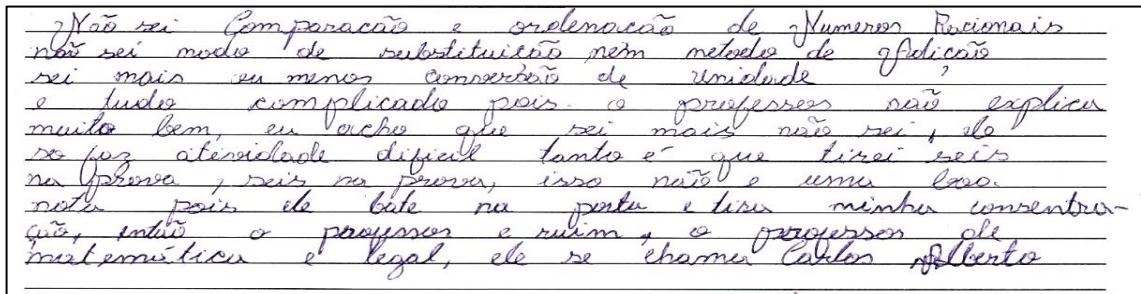 Não sei Comparacão e ordenacão de Numeros Racionais
não sei modo de substituicão nem metodo de Adição
sei mais ou menos conversão de unidade
e tudo complicado pois o professor não explica
muito bem, eu acho que sei mais não sei, ele
so faz atividade dificil tanto é que tirei seis
na prova, seis na prova, isso não e uma boa
nota pois ele bate na porta e tira minha consentra-
ção, então o professor e ruim, o professor de
matemática e legal, ele se chama Carlos Alberto